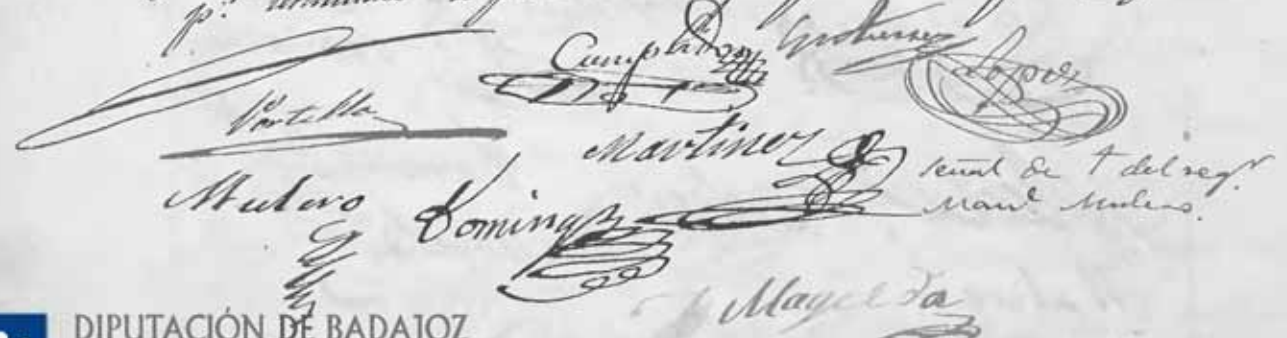 Cumplido
Gutierrez
Lopez
Portilla
Martinez
señal de † del regr
Manl Mulero.
Mulero
Dominguez
DIPUTACIÓN DE BADAJOZ